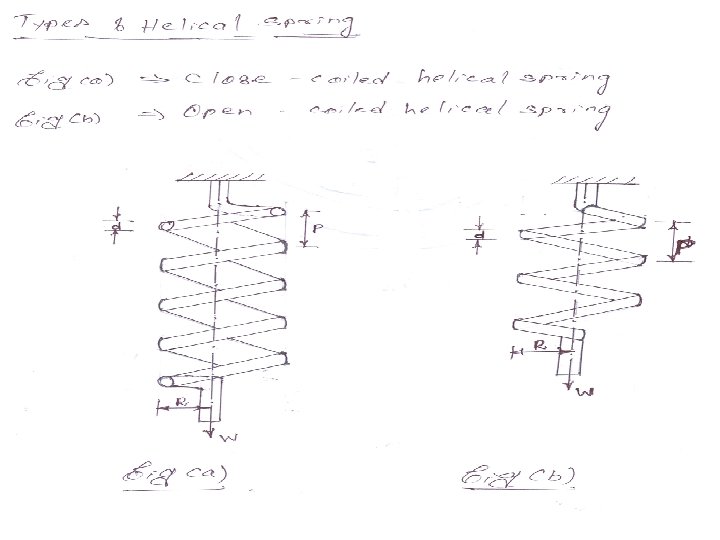 Types of Helical spring
Fig (a) ⇒ Close - coiled helical spring
Fig (b) ⇒ Open - coiled helical spring
d
P
d
P
R
W
R
W
Fig (a)
Fig (b)